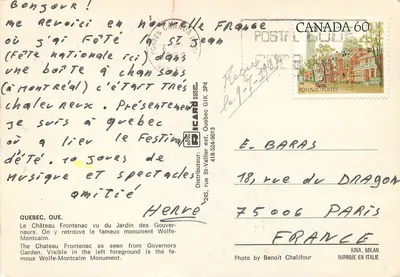 Bonjour!
me revoici en nouvelle France
où j'ai fêté la st jean
(fête nationale ici) dans
une boîte à chansons
(à montréal) c'était très
chaleureux. Présentement
je suis à quebec
où a lieu le festival
d'été. 10 jours de
musique et spectacles
amitié
Hervé
QUEBEC, QUE.
Le Château Frontenac vu du Jardin des Gouver-
neurs. On y retrouve le fameux monument Wolfe-
Montcalm.
The Chateau Frontenac as seen from Governors
Garden. Visible in the left foreground is the fa-
mous Wolfe-Montcalm Monument.
Distributeur:
RICARD
245, rue St-Vallier est, Quebec G1K 3P4
418-524-9013
CANADA 60
POSTAGE/POSTES
POSTAL CODE
E. BARAS
18, rue du DRAGON
75006 PARIS
FRANCE
KINA, MILAN
Photo by Benoit Chalifour IMPRIMÉ EN ITALIE